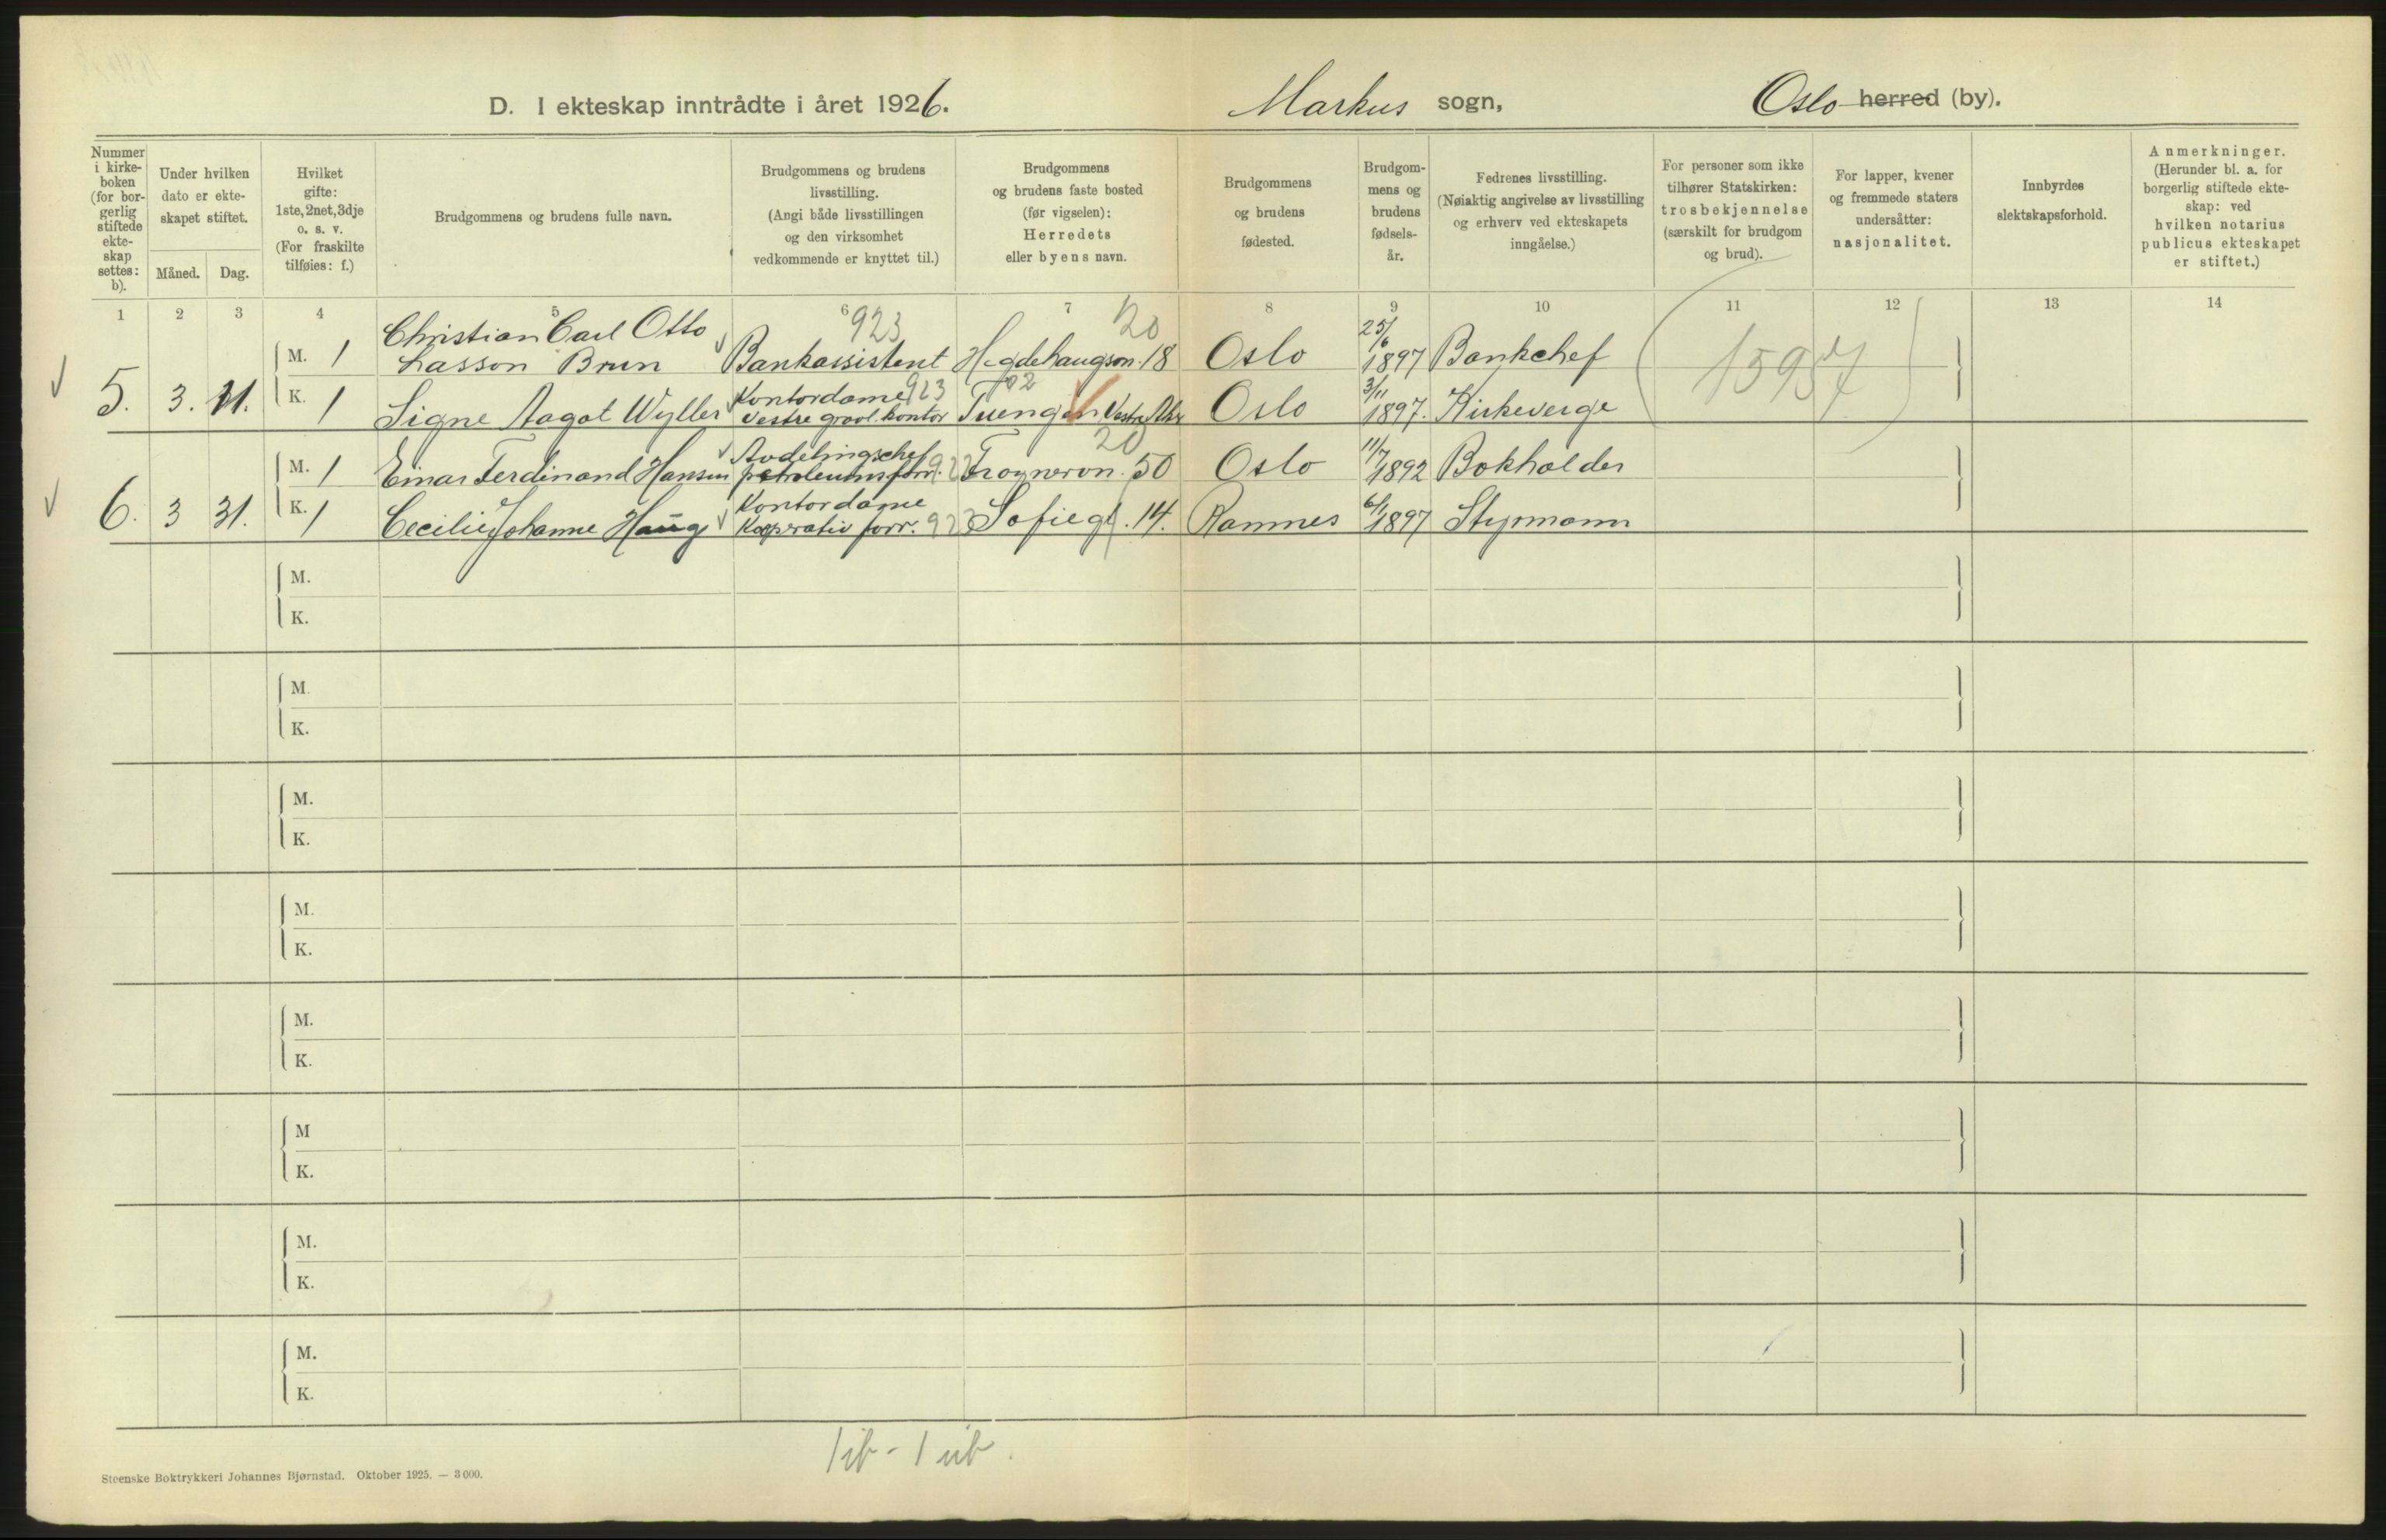 D. I ekteskap inntrådte i året 1926. Markus sogn, Oslo herred (by).
Nummer i kirke-boken (for bor-gerlig stiftede ekte-skap settes: b).
Under hvilken dato er ekte-skapet stiftet.
Måned. Dag.
Hvilket gifte: 1ste, 2net, 3dje o. s. v. (For fraskilte tilføies: f.)
Brudgommens og brudens fulle navn.
Brudgommens og brudens livsstilling. (Angi både livsstillingen og den virksomhet vedkommende er knyttet til.)
Brudgommens og brudens faste bosted (før vigselen): Herredets eller byens navn.
Brudgommens og brudens fødested.
Brudgom-mens og brudens fødsels-år.
Fedrenes livsstilling. (Nøiaktig angivelse av livsstilling og erhverv ved ekteskapets inngåelse.)
For personer som ikke tilhører Statskirken: trosbekjennelse (særskilt for brudgom og brud).
For lapper, kvener og fremmede staters undersåtter: nasjonalitet.
Innbyrdes slektskapsforhold.
Anmerkninger. (Herunder bl. a. for borgerlig stiftede ekte-skap: ved hvilken notarius publicus ekteskapet er stiftet.)
1 2 3 4 5 6 7 8 9 10 11 12 13 14
923 20
5. 3. 11.
M. 1 Christian Carl Otto Lasson Brun Bankassistent Hegdehaugsvn. 18 Oslo 25/6 1897 Bankchef
K. 1 Signe Aagot Wyller Kontordame Vestre gravl. kontor 923 Tuengen Vestre Aker Oslo 3/11 1897. Kirkeverge
1595
6. 3 31.
M. 1 Einar Ferdinand Hansen Avdelingschef petroleumsforr. Frognervn. 50 20 Oslo 11/7 1892 Bokholder
K. 1 Cecilie Johanne Haug Kontordame Kooperativ forr. Sofiegt. 14. Ramnes 6/1 1897 Styrmann
M.
K.
M.
K.
M.
K.
M.
K.
M.
K.
M
K.
M.
K.
M.
K.
1 ib - 1 ub.
Steenske Boktrykkeri Johannes Bjørnstad. Oktober 1925. — 3 000.